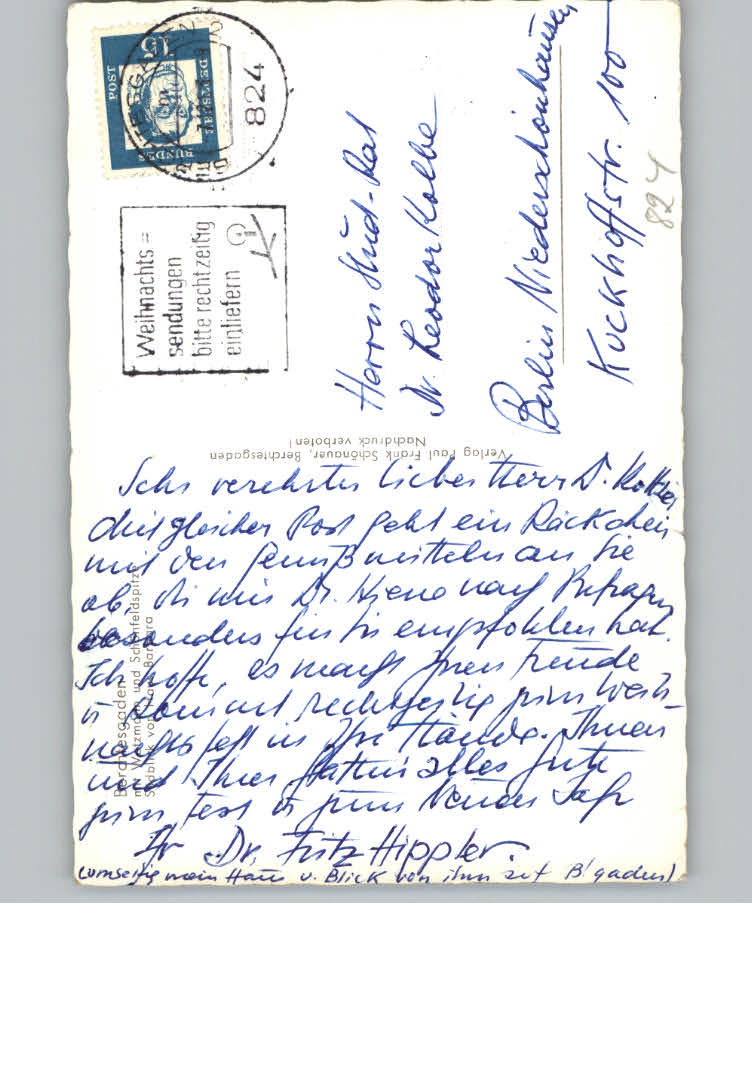 15
POST
DEUTSCHE
BUNDES
BERCHTESGADEN
824
Weihnachts=
sendungen
bitte rechtzeitig
einliefern
Herrn Stud-Rat
Dr. Theodor Kolbe
Berlin Niederschönhausen
Kuckhoffstr. 100
824
Verlag Paul Frank Schönauer, Berchtesgaden
Nachdruck verboten!
Berchtesgaden
mit Watzmann und Schönfeldspitze
Südblick von Haus Barbara
Sehr verehrter lieber Herr Dr.
Mit gleicher Post geht ein Päckchen
mit den Genußmitteln an Sie
ab, die mir Dr. nach Befragen
besonders für Sie empfohlen hat.
Ich hoffe, es macht Ihnen Freude
u kommt rechtzeitig zum Weih-
nachtsfest in Ihre Hände. Ihnen
und Ihrer Gattin alles Gute
zum Fest u zum Neuen Jahr
Ihr Dr. Fritz Hippler.
(umseitig mein Haus u. Blick von ihm auf B'gaden)